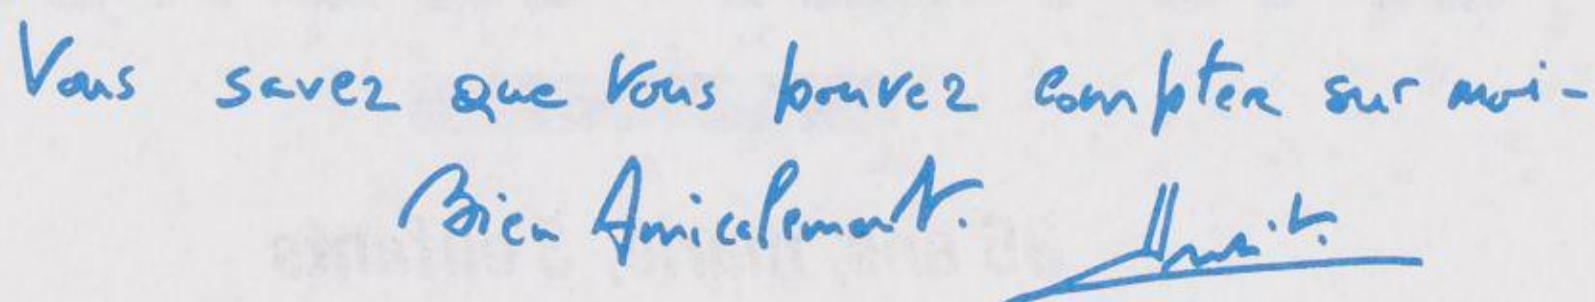 Vous savez que vous pouvez compter sur moi -
Bien Amicalement.